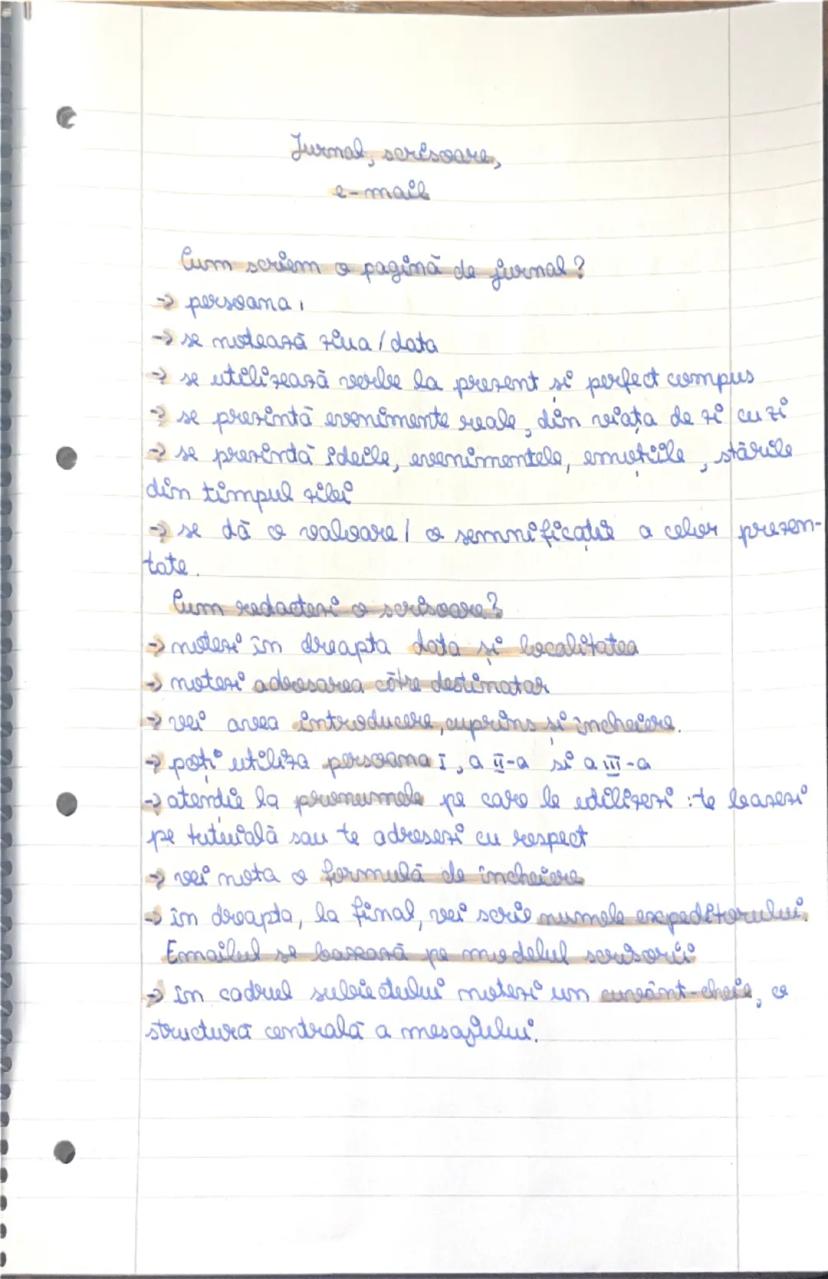 Jurnal, scrisoare,
e-mail
Cum scriem o pagină de jurnal?
→ persoana I
→ se notează ziua / data
→ se utilizează verbe la prezent și perfect compus
→ se prezintă evenimente reale, din viața de zi cu zi
→ se prezintă ideile, evenimentele, emoțiile, stările
din timpul zilei
→ se dă o valoare / o semnificație a celor prezen-
tate.
Cum redactezi o scrisoare?
→ notezi în dreapta data și localitatea
→ notezi adresarea către destinatar
→ vei avea introducere, cuprins și încheiere.
→ poți utiliza persoana I, a II-a și a III-a
→ atenție la pronumele pe care le utilizezi : te bazezi
pe tutuială sau te adresezi cu respect
→ vei nota o formulă de încheiere
→ în dreapta, la final, vei scrie numele expeditorului.
Emailul se bazează pe modelul scrisorii
→ în cadrul subiectului notezi un cuvânt-cheie, o
structură centrală a mesajului.